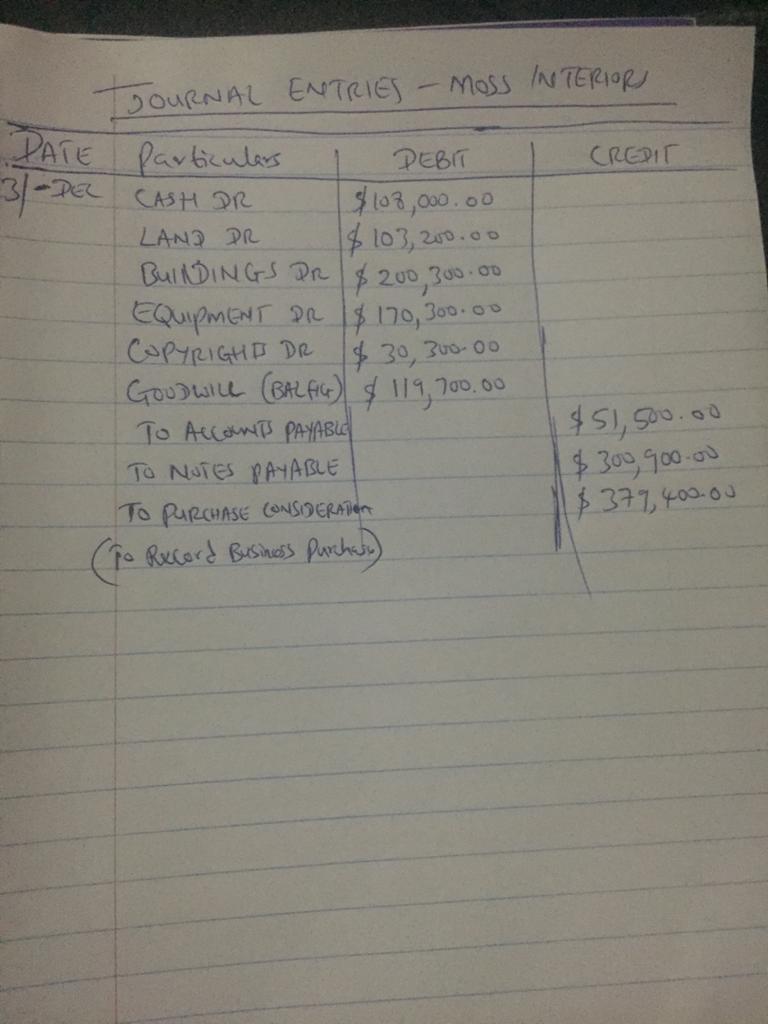 JOURNAL ENTRIES - MOSS INTERIORS
DATE Particulars DEBIT CREDIT
31-DEC CASH DR $108,000.00
LAND DR $103,200.00
BUILDINGS DR $200,300.00
EQUIPMENT DR $170,300.00
COPYRIGHTS DR $30,300.00
GOODWILL (BALFIG) $119,700.00
TO ACCOUNTS PAYABLE $51,500.00
TO NOTES PAYABLE $300,900.00
TO PURCHASE CONSIDERATION $379,400.00
(To Record Business Purchase)